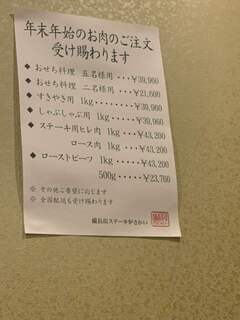 年末年始のお肉のご注文
受け賜わります
◆ おせち料理 五名様用 ・・・¥39,960
◆ おせち料理 二名様用 ・・・¥21,600
◆ すきやき用 1kg ・・・・・・・¥39,960
◆ しゃぶしゃぶ用 1kg ・・・・¥39,960
◆ ステーキ用ヒレ肉 1kg ・・¥43,200
ロース肉 1kg ・・・¥43,200
◆ ローストビーフ 1kg ・・・¥43,200
500g ・・・・・¥23,760
※ その他ご希望に応じます
※ 全国配送も受け賜わります
備長炭ステーキ炉さかい